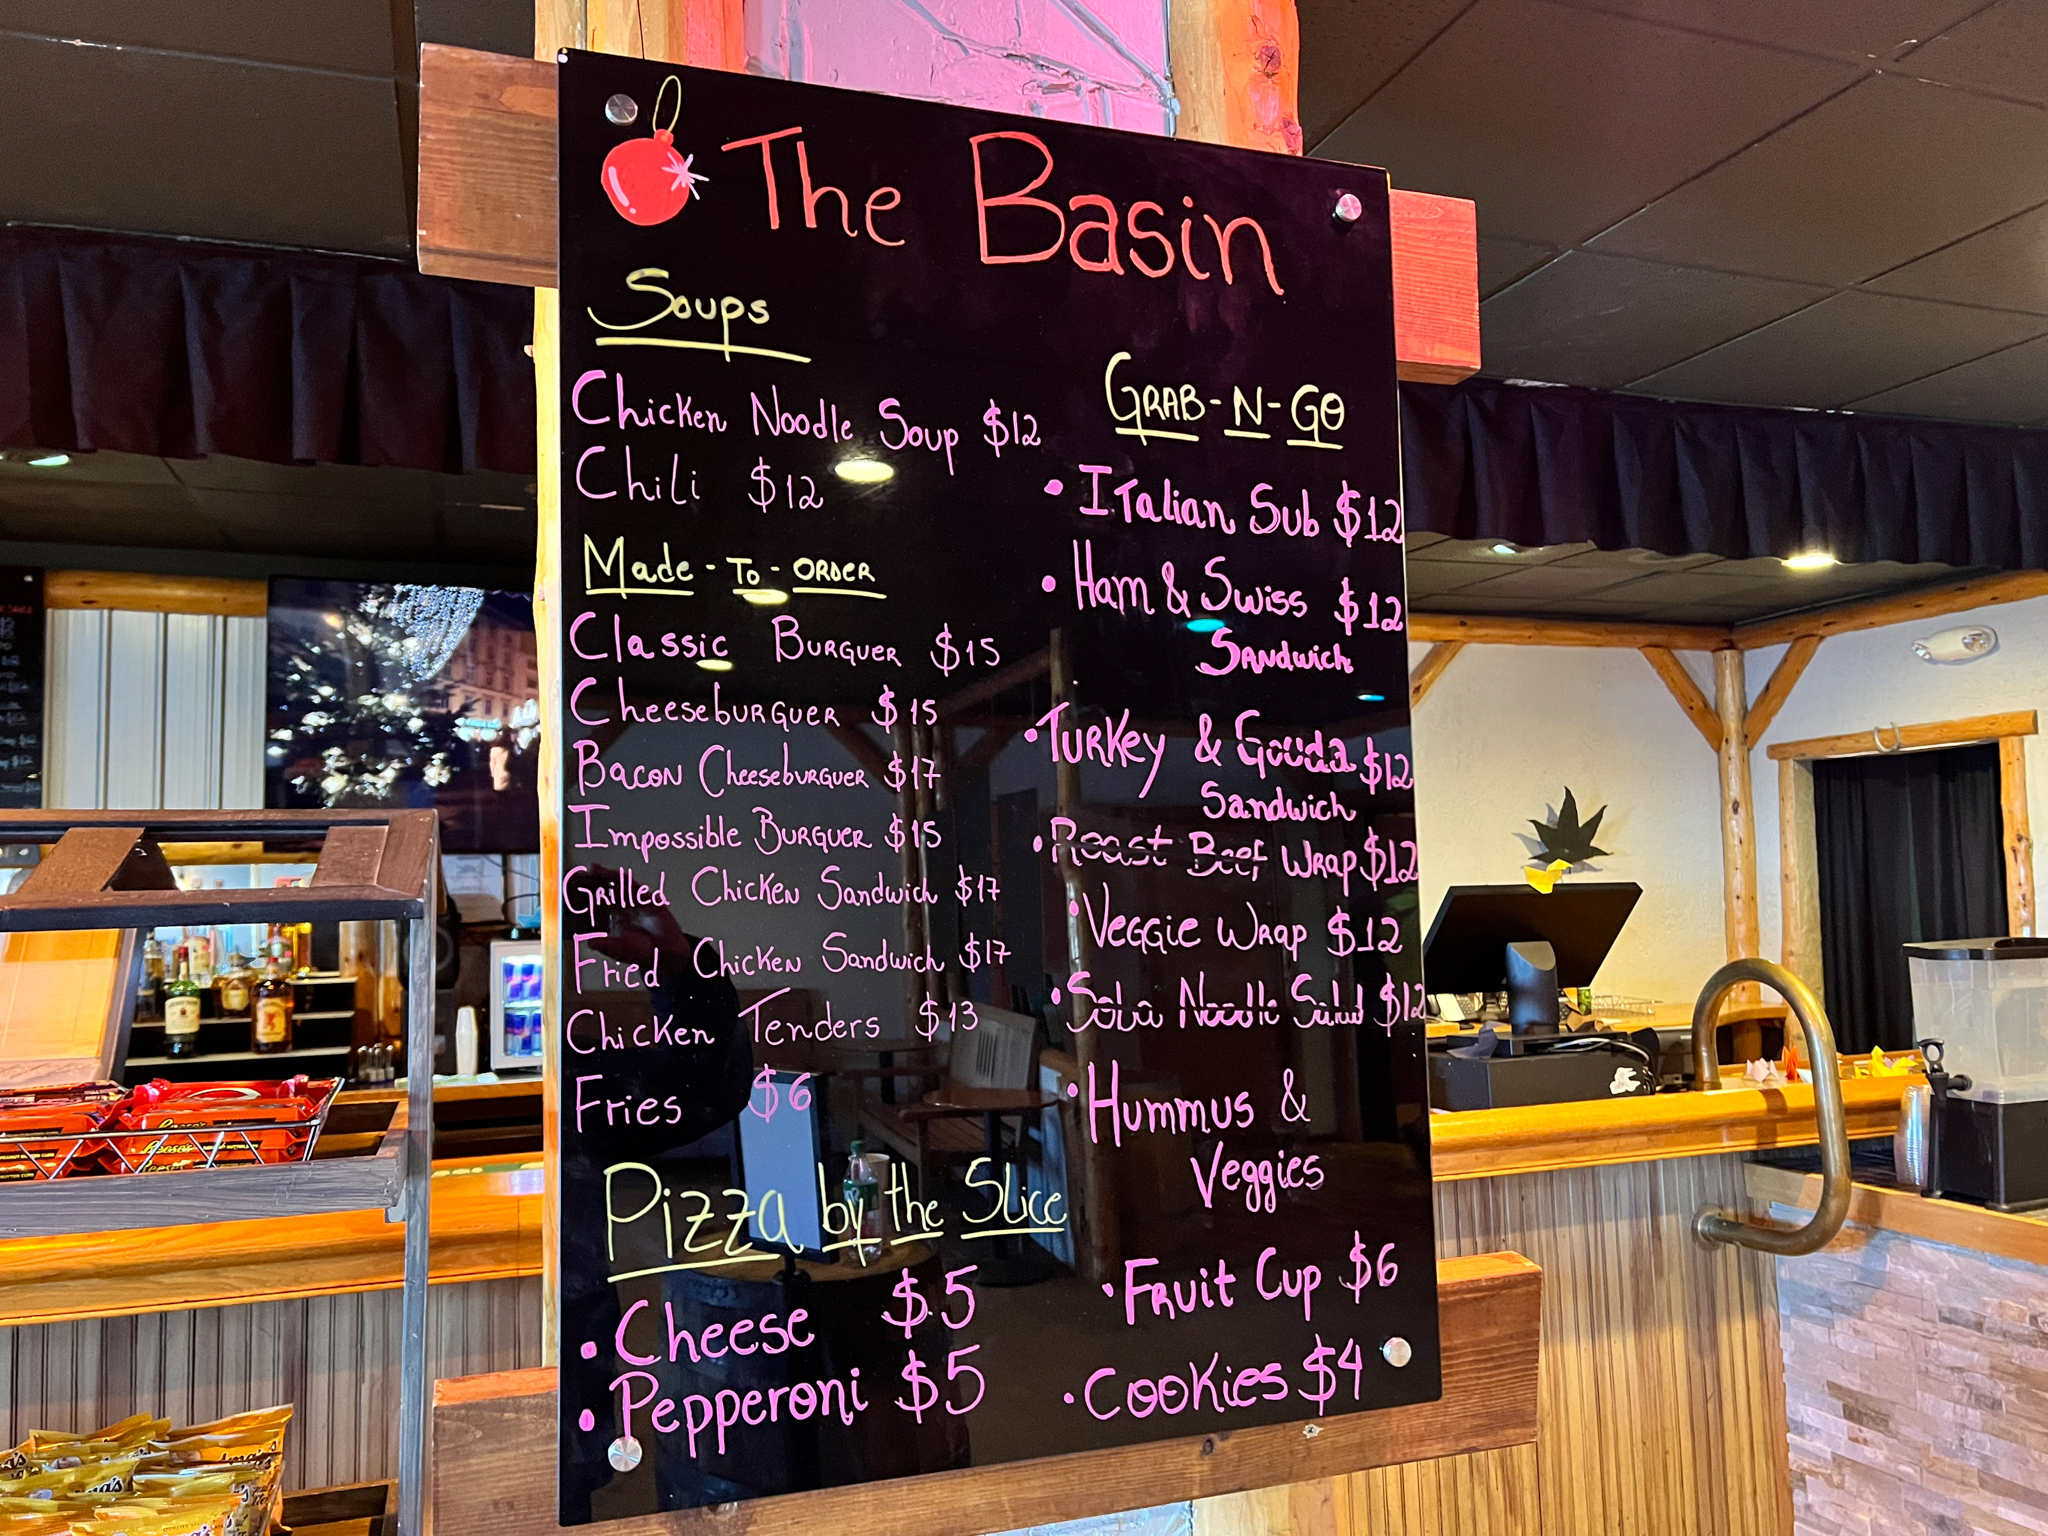 The Basin
Soups
Chicken Noodle Soup $12
Chili $12
Made-To-Order
Classic Burguer $15
Cheeseburguer $15
Bacon Cheeseburguer $17
Impossible Burguer $15
Grilled Chicken Sandwich $17
Fried Chicken Sandwich $17
Chicken Tenders $13
Fries $6
Pizza by the Slice
• Cheese $5
• Pepperoni $5
Grab-N-Go
• Italian Sub $12
• Ham & Swiss $12
Sandwich
• Turkey & Gouda $12
Sandwich
• Roast Beef Wrap $12
• Veggie Wrap $12
• Soba Noodle Salad $12
• Hummus &
Veggies
• Fruit Cup $6
• Cookies $4
Reese's